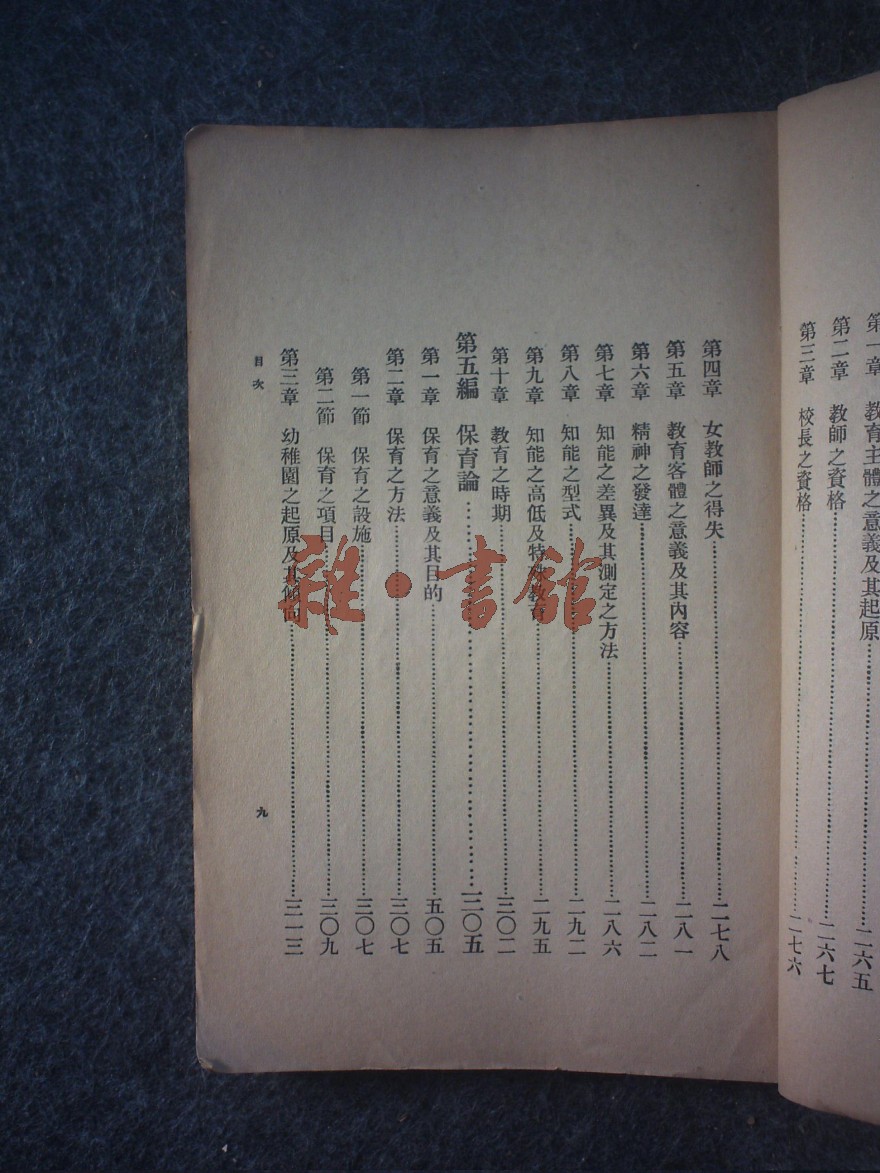 第一章　教育主體之意義及其起原……二六五
第二章　教師之資格……二六七
第三章　校長之資格……二七六
第四章　女教師之得失……二七八
第五章　教育客體之意義及其內容……二八一
第六章　精神之發達……二八二
第七章　知能之差異及其測定之方法……二八六
第八章　知能之型式……二九二
第九章　知能之高低及特殊教育……二九五
第十章　教育之時期……三〇二
第五編　保育論……三〇五
第一章　保育之意義及其目的……五〇五
第二章　保育之方法……三〇七
第一節　保育之設施……三〇七
第二節　保育之項目……三〇九
第三章　幼稚園之起原及其傾向……三一三
目次
九
雜·書館